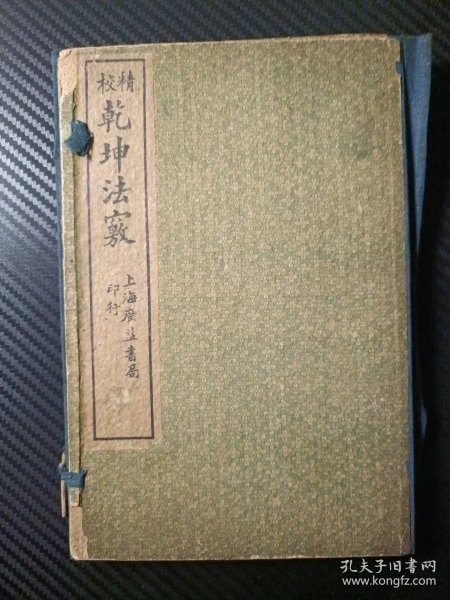 精校
乾坤法竅
上海廣益書局
印行
孔夫子旧书网
www.kongfz.com